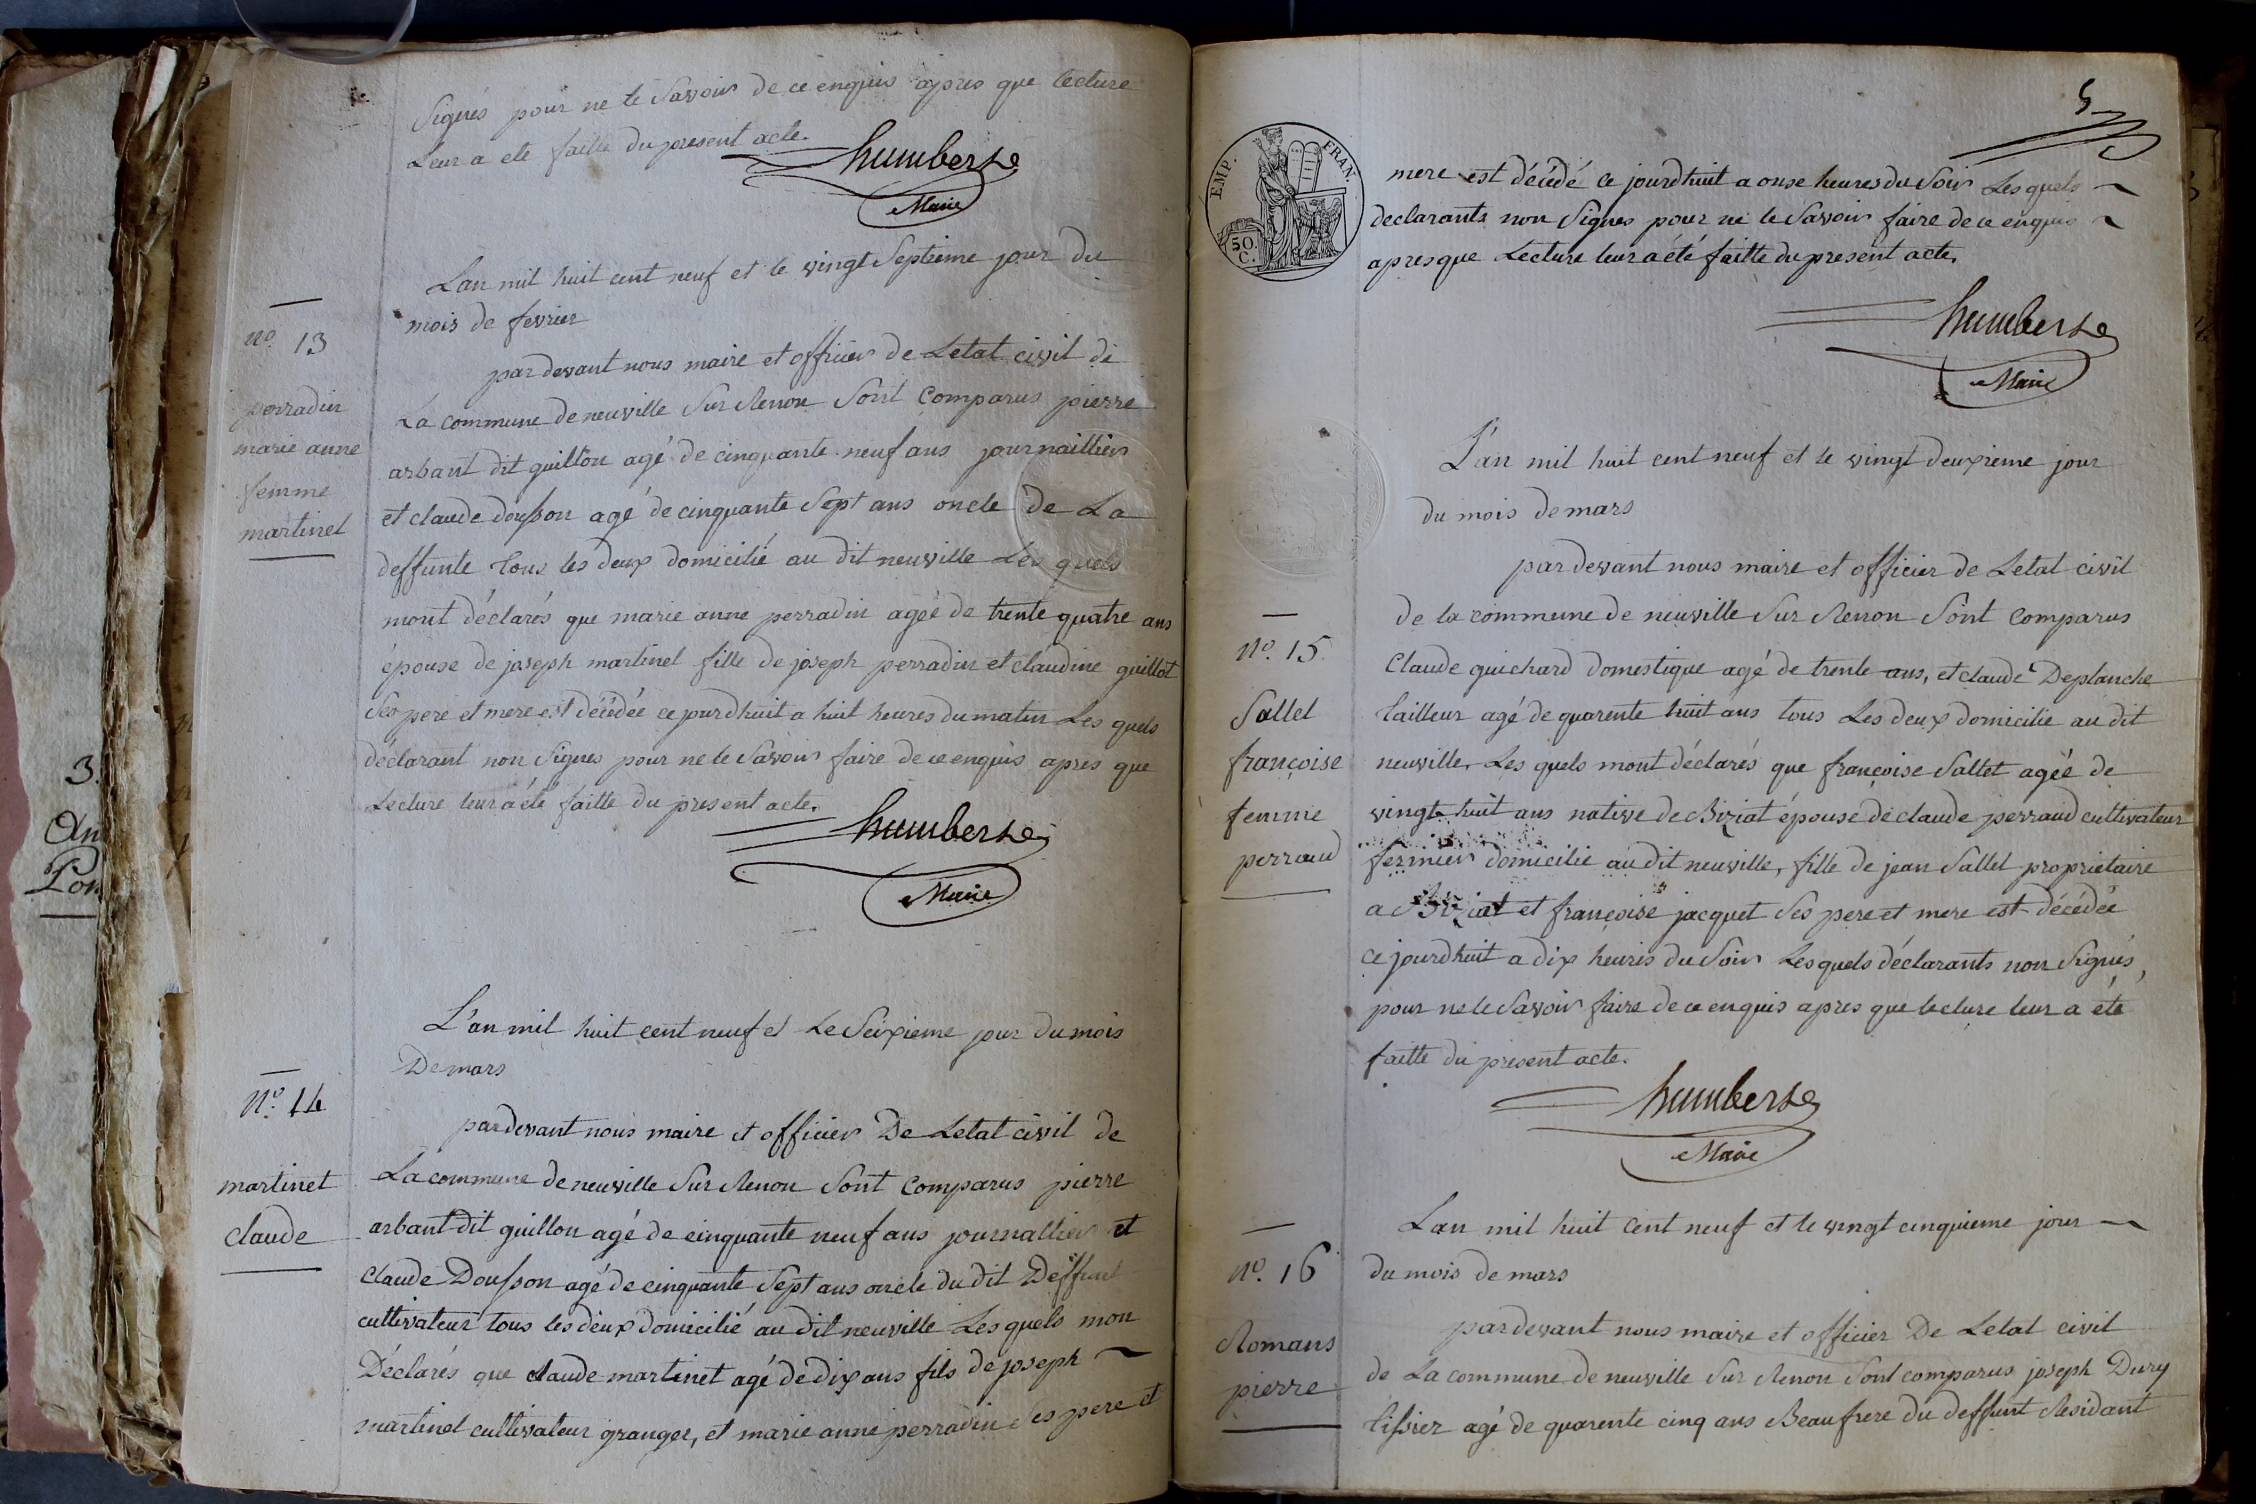 Signés pour ne le Savoir de ce enquis apres que lecture
Leur a eté faitte du present acte.
humbert
Maire
Lan mil huit cent neuf et le vingt Septieme jour du
mois de fevrier
n.º 13
perradin
marie anne
femme
martinet
par devant nous maire et officier de Letat civil de
La commune de neuville Sur Renon Sont comparus pierre
arbant dit guillon agé de cinquante neuf ans journaillier
et claude dousson agé de cinquante Sept ans oncle de La
deffunte tous les deux domicilié au dit neuville Les quels
mont déclarés que marie anne perradin agée de trente quatre ans
épouse de joseph martinet fille de joseph perradin et claudine guillot
Ses pere et mere est décédée ce jourdhuit a huit heures du matin Les quels
déclarant non Signes pour ne le Savoir faire de ce enquis apres que
Lecture leur a été faitte du present acte.
humbert
Maire
L'an mil huit cent neuf et Le Seixieme jour du mois
De mars
N.º 14
martinet
claude
pardevant nous maire et officier De Letat civil de
La commune de neuville Sur Renon Sont comparus pierre
arbant dit guillon agé de cinquante neuf ans journallier et
claude Dousson agé de cinquante Sept ans oncle du dit Deffunt
cultivateur tous les deux domicilié au dit neuville Les quels mon
Déclarés que claude martinet agé de dix ans fils de joseph
martinet cultivateur granger, et marie anne perradin Ses pere et
5
EMP. FRAN.
50.
C.
mere est décédé ce jourdhuit a onse heures du Soir Les quels
declarants non Signes pour ne le Savoir faire de ce enquis
apres que Lecture leur a été faitte du present acte.
humbert
Maire
L'an mil huit cent neuf et le vingt deuxieme jour
du mois de mars
N.º 15
Sallet
françoise
femme
perraud
par devant nous maire et officier de Letat civil
de la commune de neuville Sur Renon Sont comparus
Claude guichard domestique agé de trente ans, et claude Deplanche
tailleur agé de quarente huit ans tous Les deux domicilie au dit
neuville, Les quels mont déclarés que françoise Sallet agée de
vingt huit ans native de Biziat épouse de claude perraud cultivateur
fermier domicilie au dit neuville, fille de jean Sallet proprietaire
a Biziat et françoise jacquet Ses pere et mere est décédée
ce jourdhuit a dix heures du Soir Lesquels déclarants non Signés,
pour ne le Savoir faire de ce enquis apres que lecture leur a été
faitte du present acte.
humbert
Maire
Lan mil huit cent neuf et le vingt cinquieme jour
du mois de mars
N.º 16
Romans
pierre
pardevant nous maire et officier De Letat civil
de La commune de neuville Sur Renon Sont comparus joseph Dury
tissier agé de quarente cinq ans Beaufrere du deffunt Residant